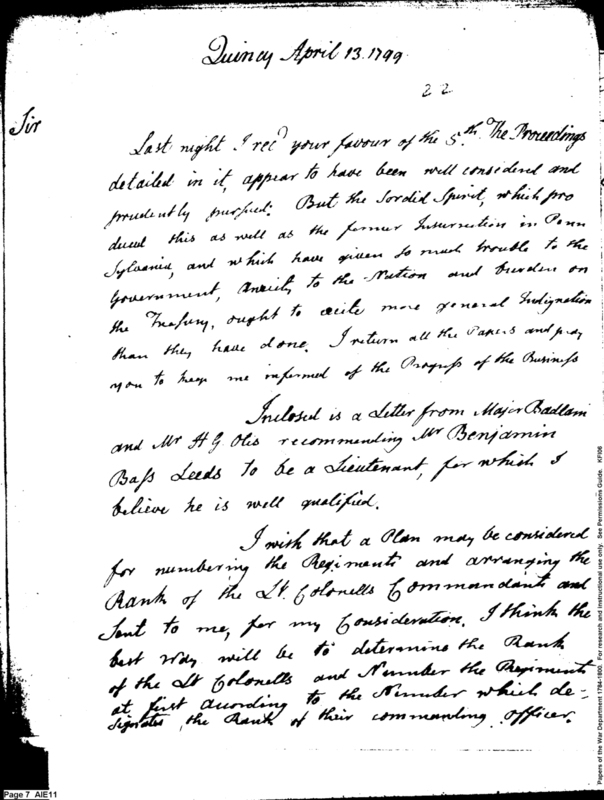 Quincy April 13. 1799
22
Sir
Last night I recd your favour of the 5th. The Proceedings
detailed in it, appear to have been well considered and
prudently pursued. But the Sordid Spirit, which pro
duced this as well as the former Insurrection in Penn
Sylvania, and which have given so much trouble to the
Government, Anxiety to the Nation and burden on
the Treasury, ought to excite more general Indignation
than they have done. I return all the Papers and pray
you to keep me informed of the Progress of the Business
Inclosed is a Letter from Major Badlam
and Mr H G Otis recommending Mr Benjamin
Bass Leeds to be a Lieutenant, for which I
believe he is well qualified.
I wish that a Plan may be considered
for numbering the Regiments and arranging the
Rank of the Lt. Colonells Commandants and
Sent to me, for my Consideration. I think the
best way will be to determine the Rank
of the Lt Colonells and Number the Regiments
at first according to the Number which de-
signates the Rank of their commanding officer.
Page 7 AIE11
Papers of the War Department 1784-1800. For research and instructional use only. See Permissions Guide. KFI06